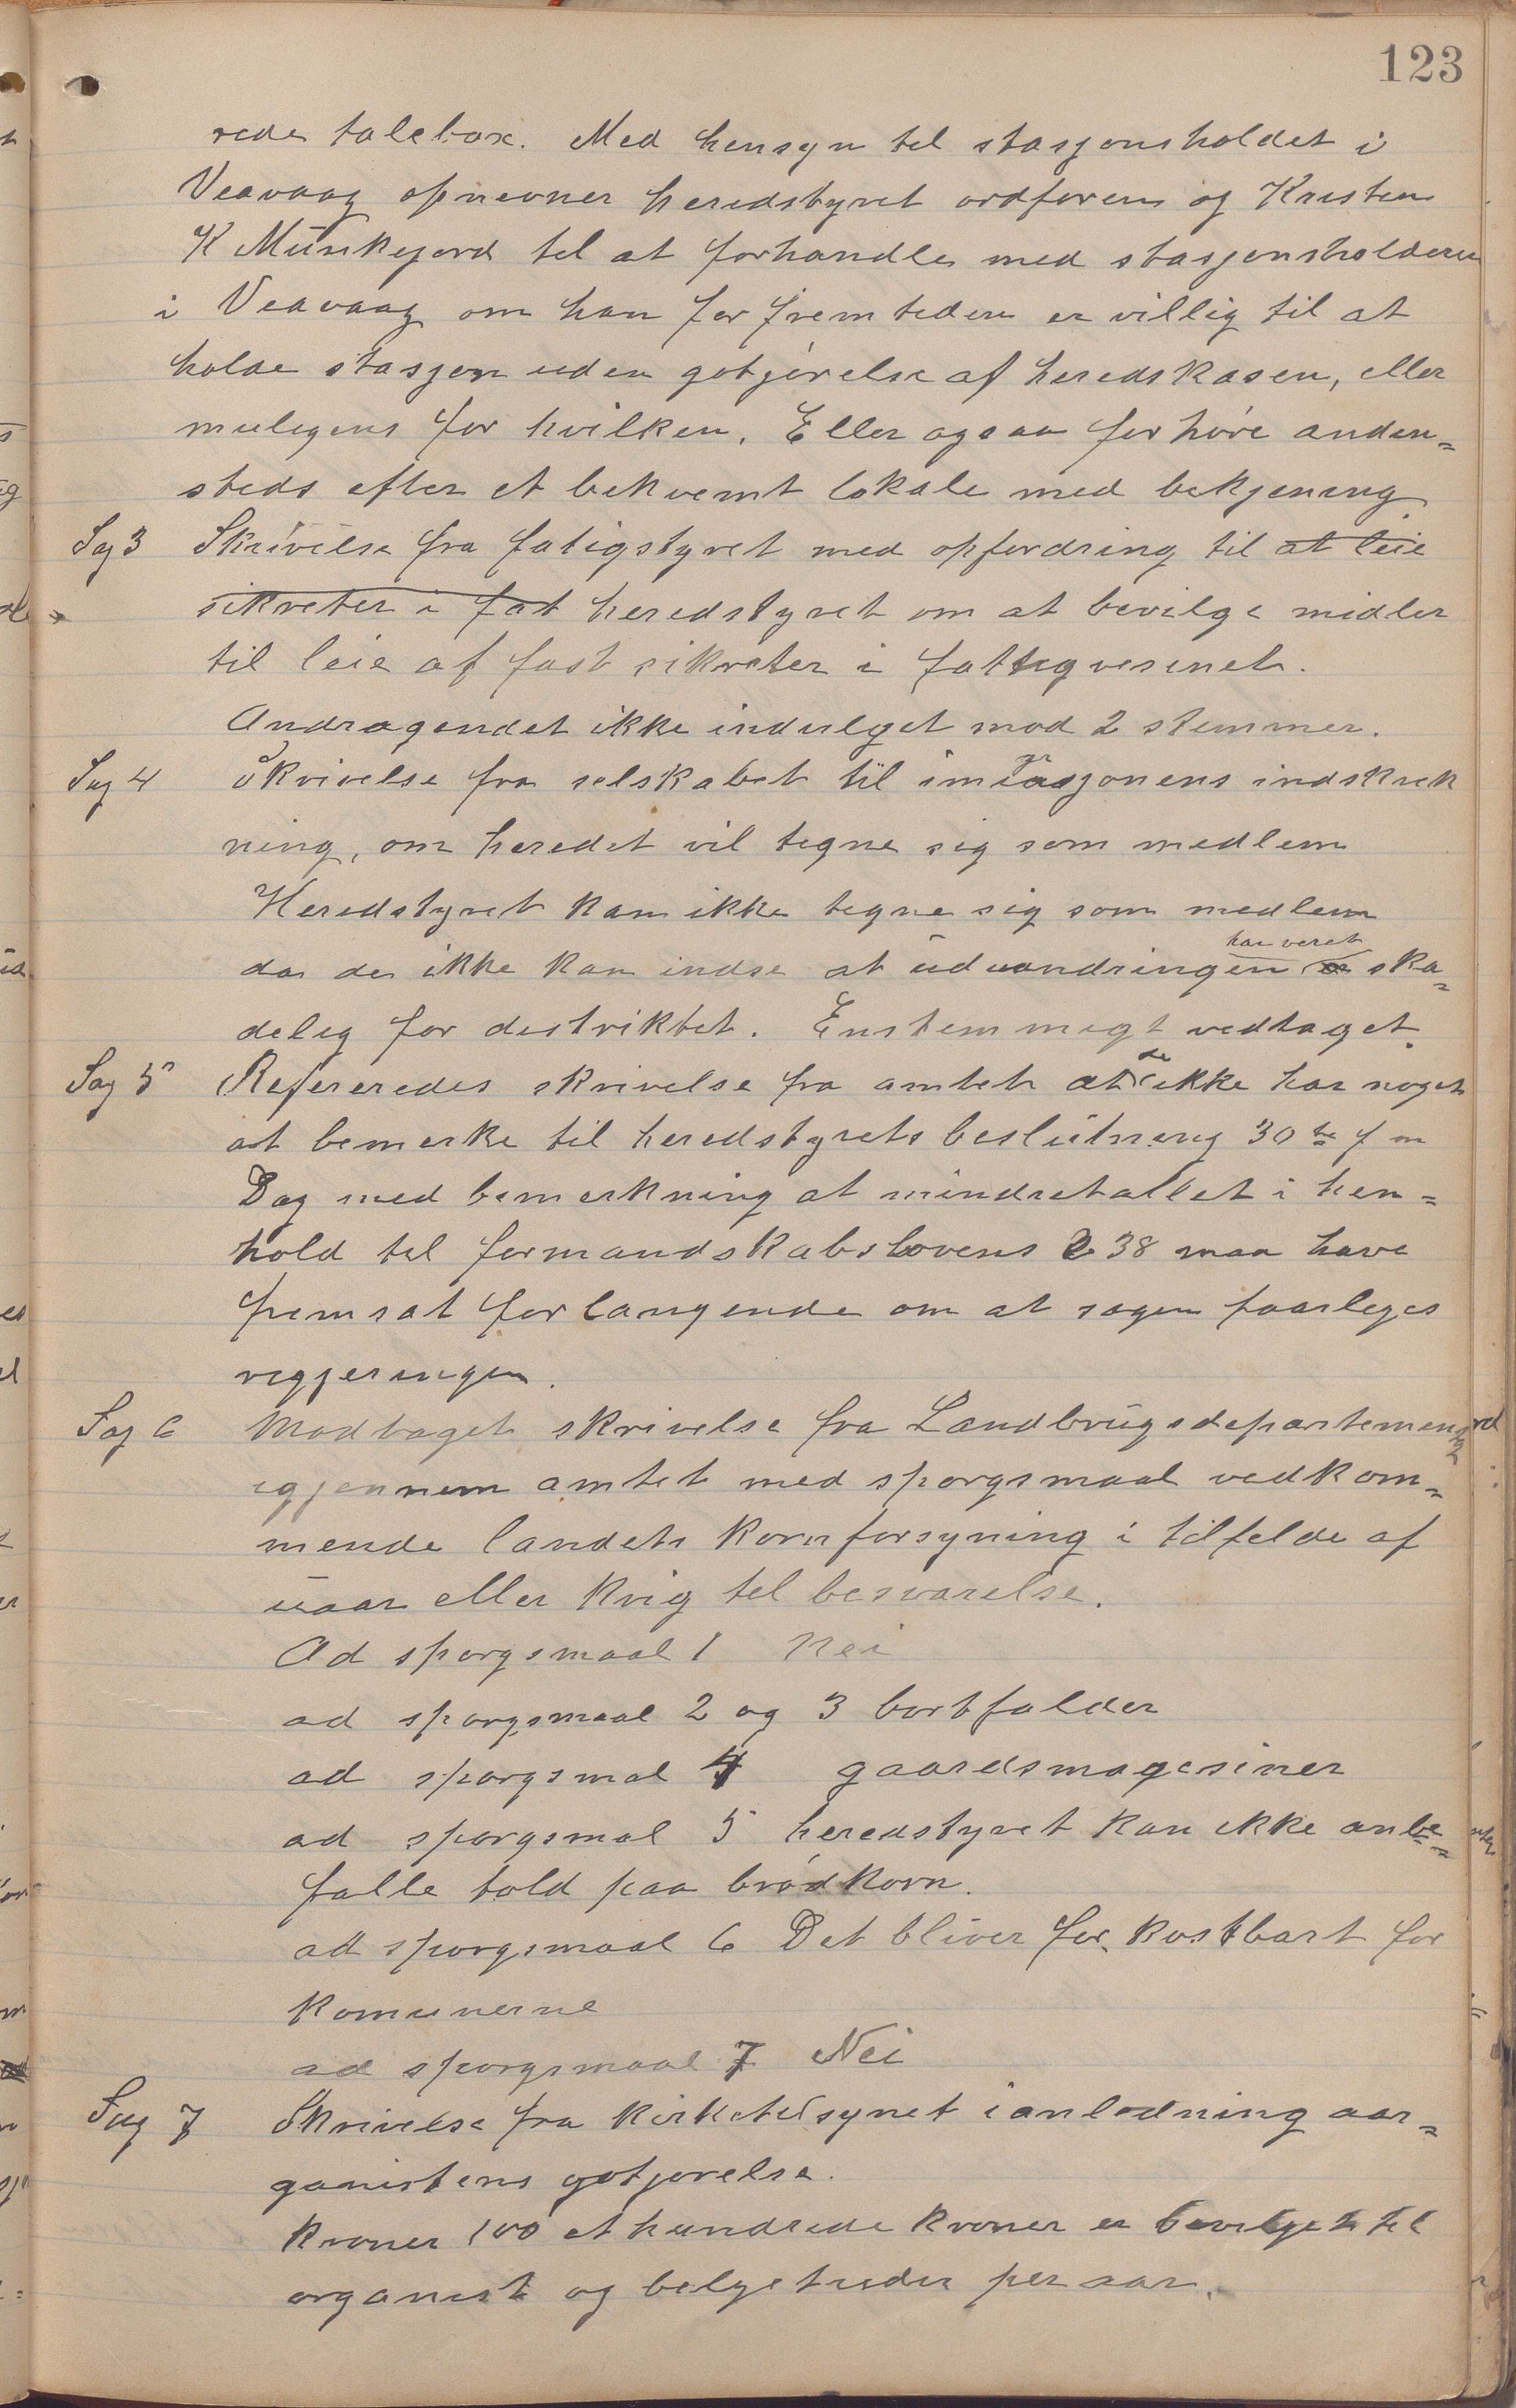 123
rede talebox. Med hensyn til stasjonsholdet i
Veavaag opnevner heredstyret ordføren og Kristen
K Munkejord til at forhandle med stasjonsholderen
i Veavaag om han for fremtiden er villig til at
holde stasjon uden gotjørelse af heredskasen, eller
muligens for hvilken. Eller ogsaa forhøre anden=
steds efter et bekvemt lokale med bekjening
Sag 3 Skrivelse fra fatigstyret med opfordring til at leie
sikreter i fat heredstyret om at bevilge midler
til leie af fast sikreter i fattigvesenet.
Andragendet ikke indvlget mod 2 stemmer.
Sag 4 Skrivelse fra selskabet til imigrasjonens indskrenk
ning, om heredet vil tegne sig som medlem
Heredstyret kan ikke tegne sig som medlem
har veret
da de ikke kan indse at udvandringen er ska=
delig for distriktet. Enstemmigt vedtaget.
Sag 5 Refereredes skrivelse fra amtet at de ikke har noget
at bemerke til heredstyrets beslutning 30te f m
Dog med bemerkning at mindretallet i hen=
hold til formandskabslovens § 38 maa have
fremsat forlangende om at sagen foarleges
regjeringen.
Sag 6 Modtaget skrivelse fra Landbrugsdepartementet
igjennem amtet med sporgsmaal vedkom=
mende landets kornforsyning i tilfelde af
uaar eller krig til besvarelse.
Ad sporgsmaal 1 Nei
ad sporgsmaal 2 og 3 bortfalder
ad sporgsmal 4 gaardsmagesiner
ad sporgsmal 5 heredstyret kan ikke anbe=
falle told paa brødkorn.
ad sporgsmaal 6 Det bliver for kostbart for
komunerne
ad sporgsmaal 7 Nei
Sag 7 Skrivelse fra kirketilsynet i anledning aar=
ganistens gotjørelse.
Kroner 100 et hundrede kroner er bevilget til
organist og belgetreder per aar.